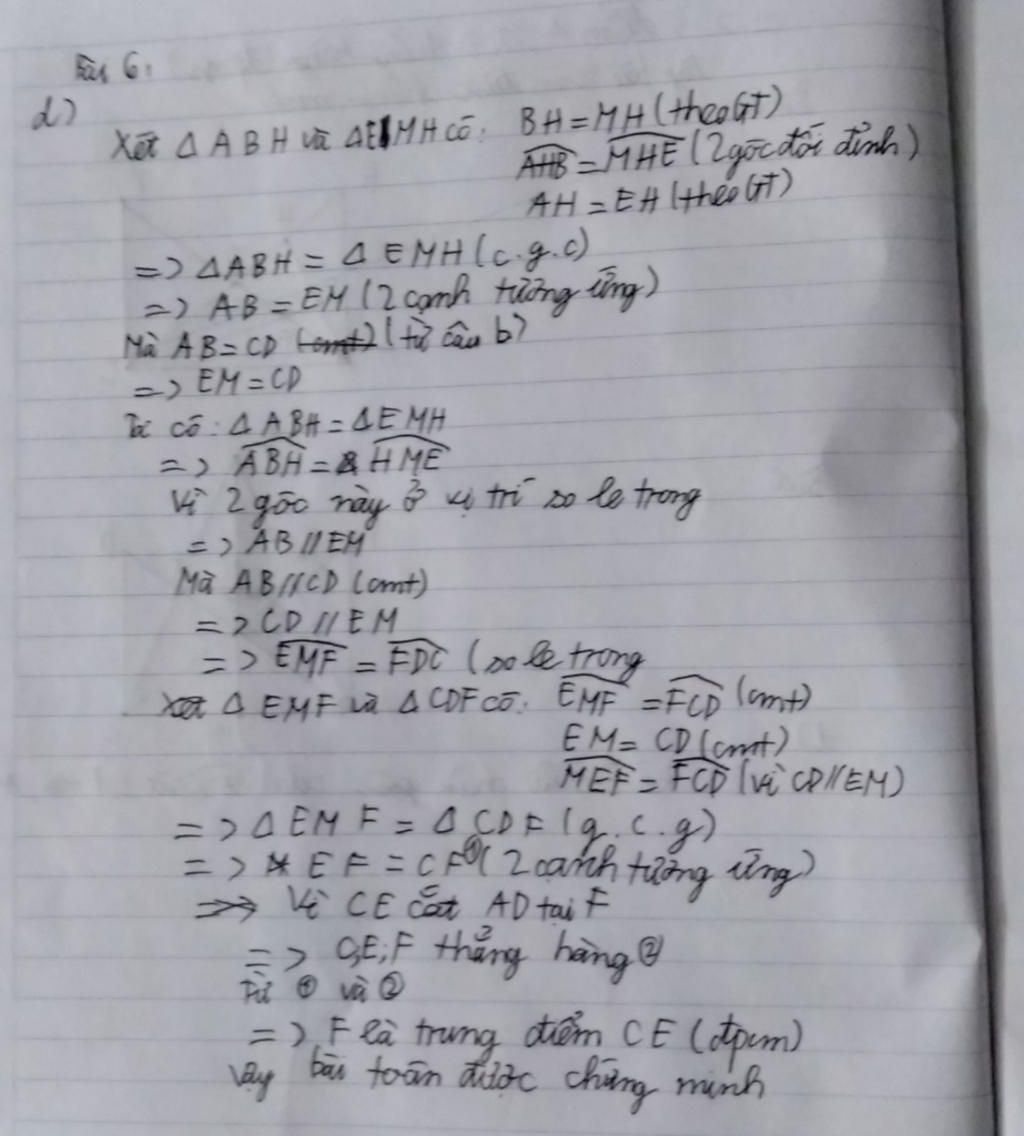 Bài 6:
d)
Xét Δ ABH và ΔEMH có: BH = MH (theo GT)
AHB = MHE (2 góc đối đỉnh)
AH = EH (theo GT)
=> ΔABH = Δ EMH (c.g.c)
=> AB = EM (2 cạnh tương ứng)
Mà AB = CD (cmt) (từ câu b)
=> EM = CD
Ta có: Δ ABH = Δ EMH
=> ABH = HME
Vì 2 góc này ở vị trí so le trong
=> AB // EM
Mà AB // CD (cmt)
=> CD // EM
=> EMF = FDC (so le trong
Xét Δ EMF và Δ CDF có: EMF = FCD (cmt)
EM = CD (cmt)
MEF = FCD (vì CD // EM)
=> Δ EMF = Δ CDF (g.c.g)
=> EF = CF ① (2 cạnh tương ứng)
=> Vì CE cắt AD tại F
=> C,E,F thẳng hàng ②
Từ ① và ②
=> F là trung điểm CE (đpcm)
Vậy bài toán được chứng minh